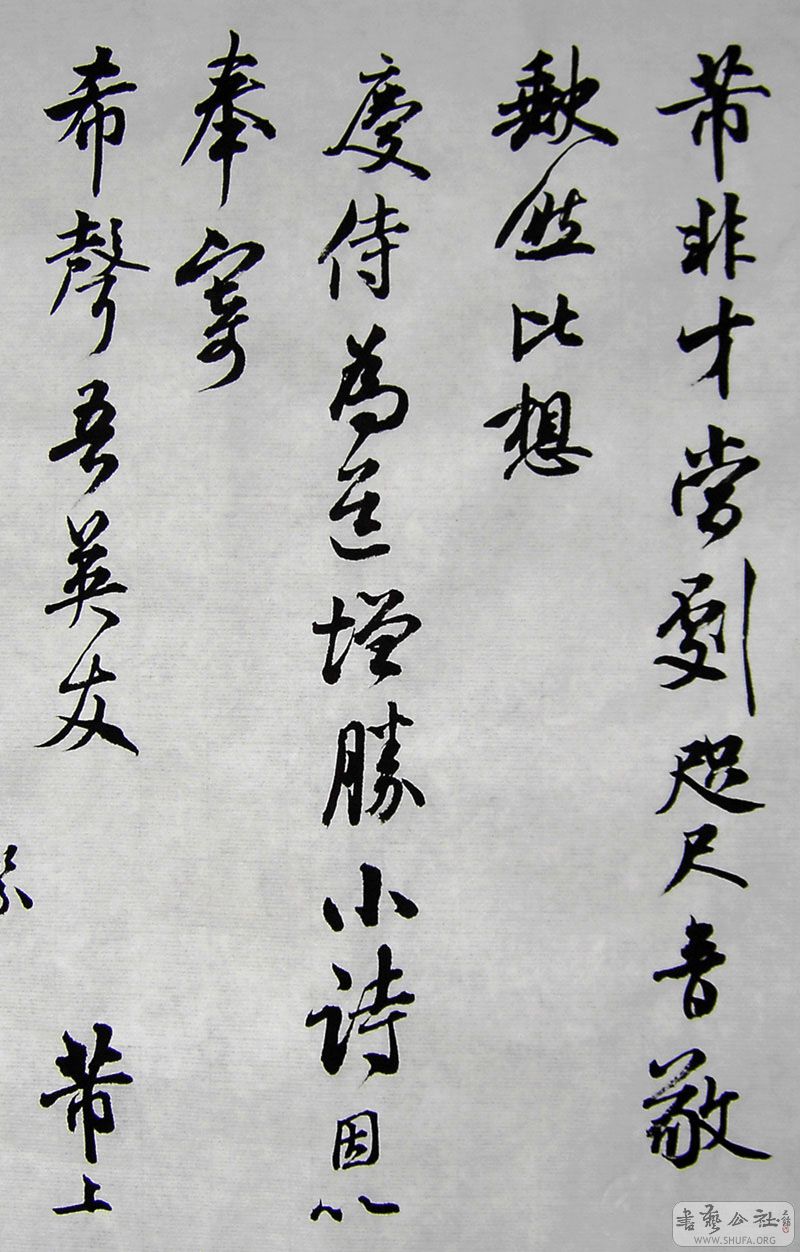 芾非才當劇咫尺音敬
歉然比想
慶侍為道增勝小詩因以
奉寄
希聲吾英友
芾上
書藝公社
WWW.SHUFA.ORG